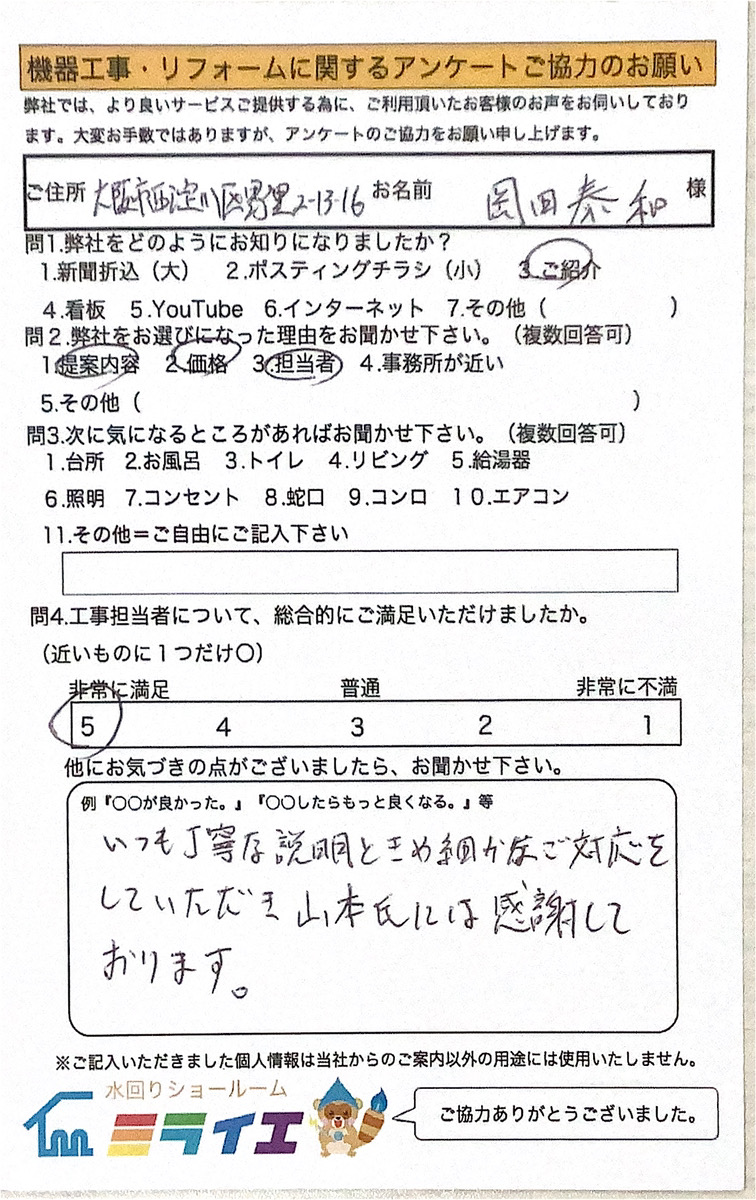 機器工事・リフォームに関するアンケートご協力のお願い
弊社では、より良いサービスご提供する為に、ご利用頂いたお客様のお声をお伺いしており
ます。大変お手数ではありますが、アンケートのご協力をお願い申し上げます。
ご住所 大阪市西淀川区野里2-13-16 お名前 岡田泰和 様
問1.弊社をどのようにお知りになりましたか?
1.新聞折込（大） 2.ポスティングチラシ（小） 3.ご紹介
4.看板 5.YouTube 6.インターネット 7.その他（ ）
問2.弊社をお選びになった理由をお聞かせ下さい。（複数回答可）
1.提案内容 2.価格 3.担当者 4.事務所が近い
5.その他（ ）
問3.次に気になるところがあればお聞かせ下さい。（複数回答可）
1.台所 2.お風呂 3.トイレ 4.リビング 5.給湯器
6.照明 7.コンセント 8.蛇口 9.コンロ 10.エアコン
11.その他＝ご自由にご記入下さい
問4.工事担当者について、総合的にご満足いただけましたか。
（近いものに1つだけ〇）
非常に満足 普通 非常に不満
5 4 3 2 1
他にお気づきの点がございましたら、お聞かせ下さい。
例『〇〇が良かった。』『〇〇したらもっと良くなる。』等
いつも丁寧な説明ときめ細かなご対応を
していただき 山本氏には感謝して
おります。
※ご記入いただきました個人情報は当社からのご案内以外の用途には使用いたしません。
水回りショールーム
ミライエ
ご協力ありがとうございました。